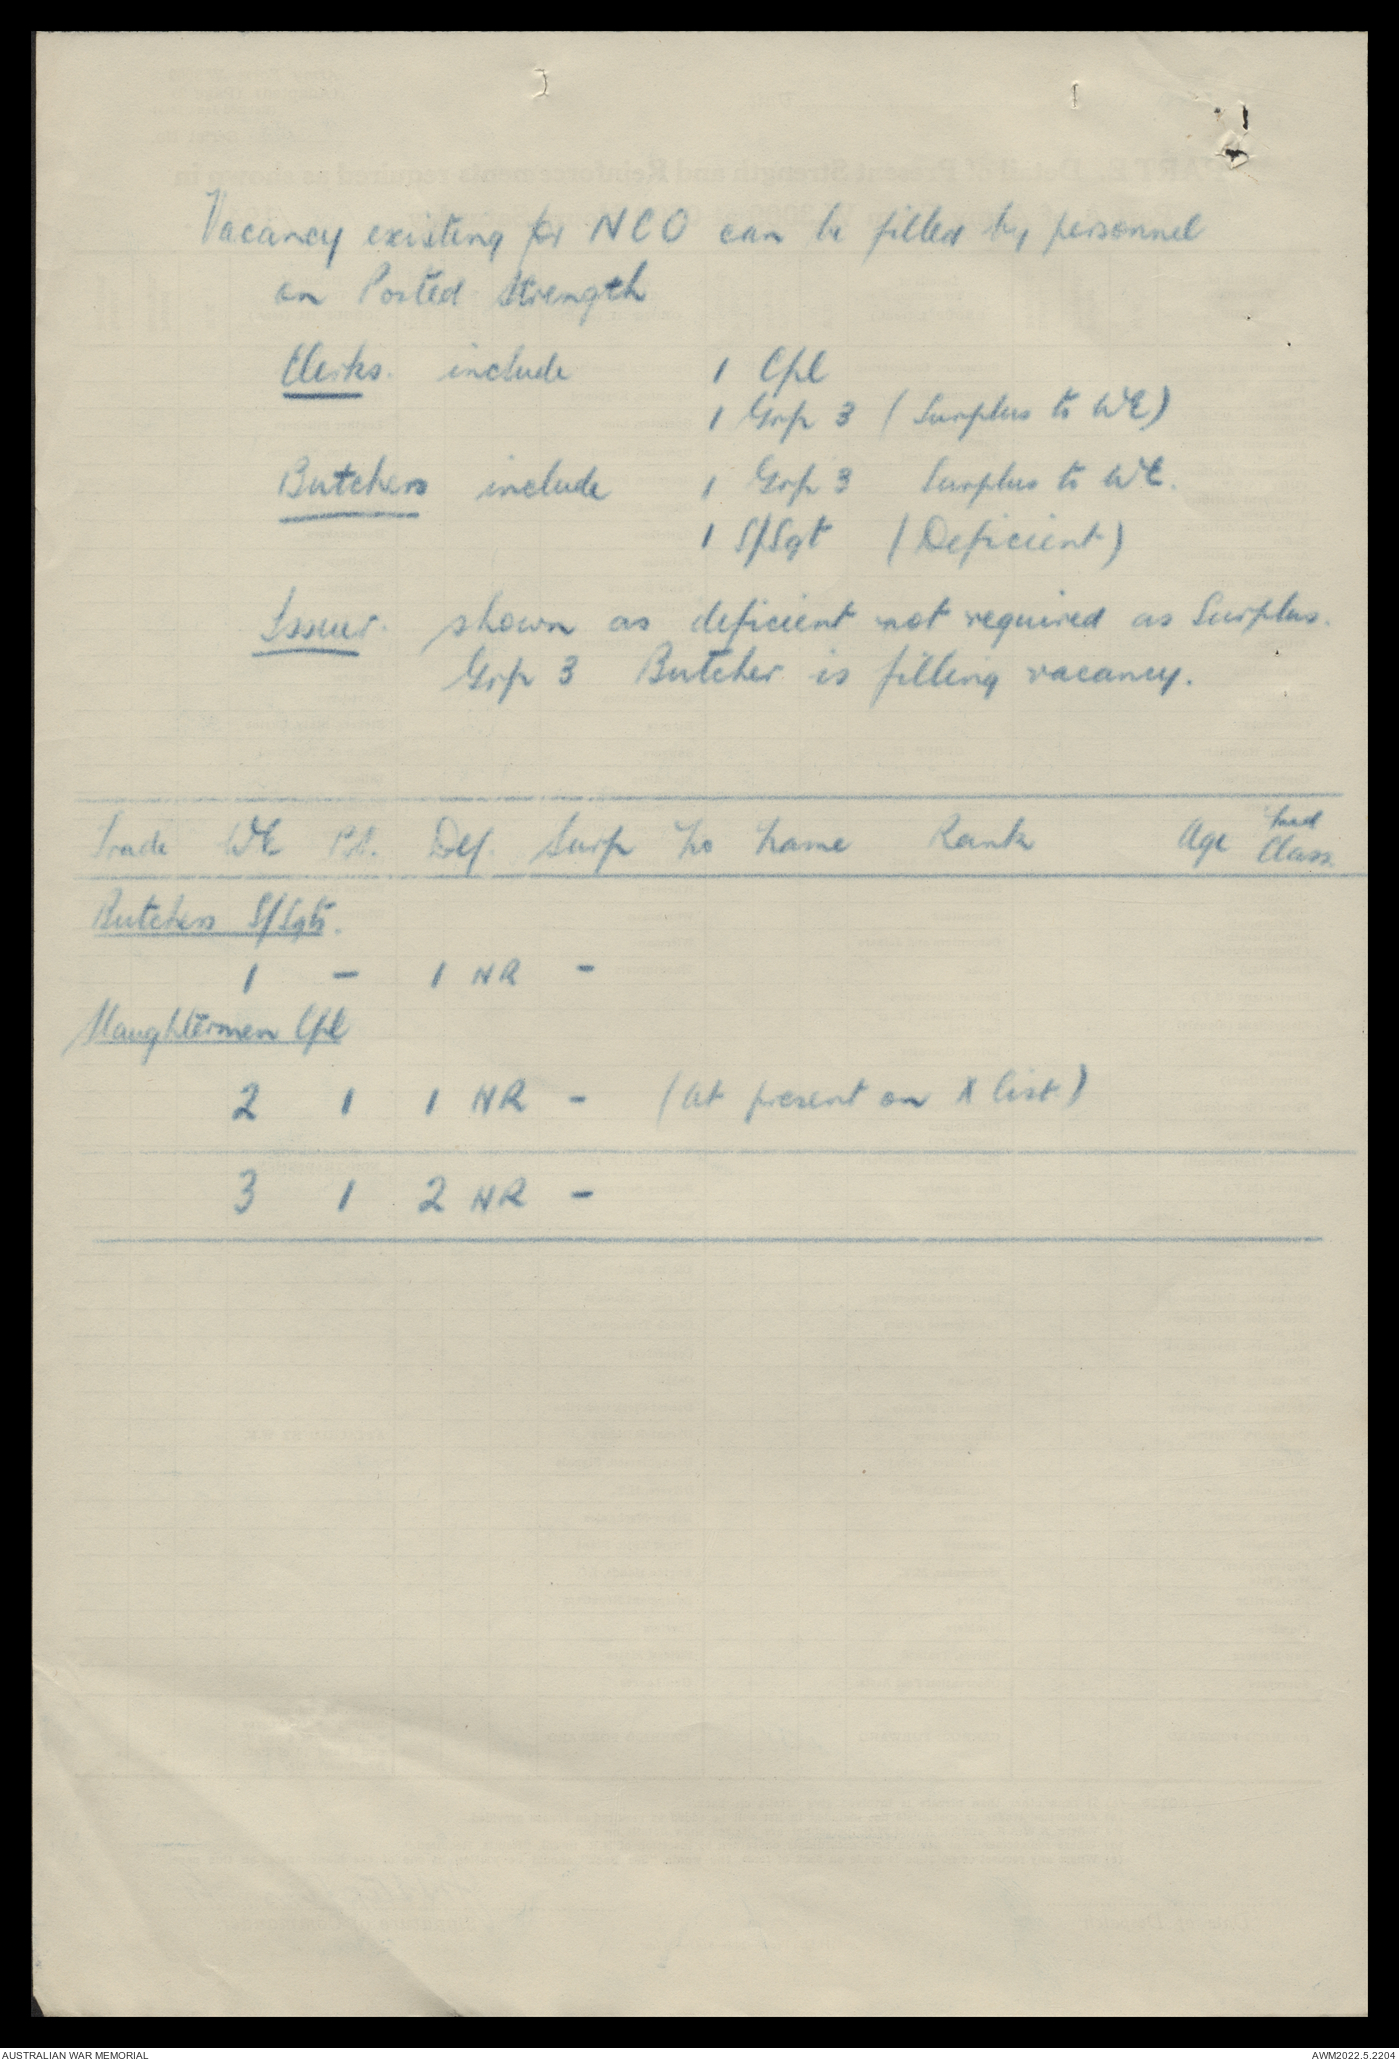 Vacancy existing for NCO can be filled by personnel
on Posted Strength
Clerks. include 1 Cpl
1 Grp 3 (Surplus to WE)
Butchers include 1 Grp 3 Surplus to WE.
1 S/Sgt (Deficient)
Issuer. shown as deficient not required as Surplus.
Grp 3 Butcher is filling vacancy.
Trade WE Pd. Def. Surp No Name Rank Age Med Class.
Butchers S/Sgts.
1 - 1 NR -
Slaughtermen Cpl
2 1 1 NR - (At present on X list)
3 1 2 NR -
AUSTRALIAN WAR MEMORIAL
AWM2022.5.2204